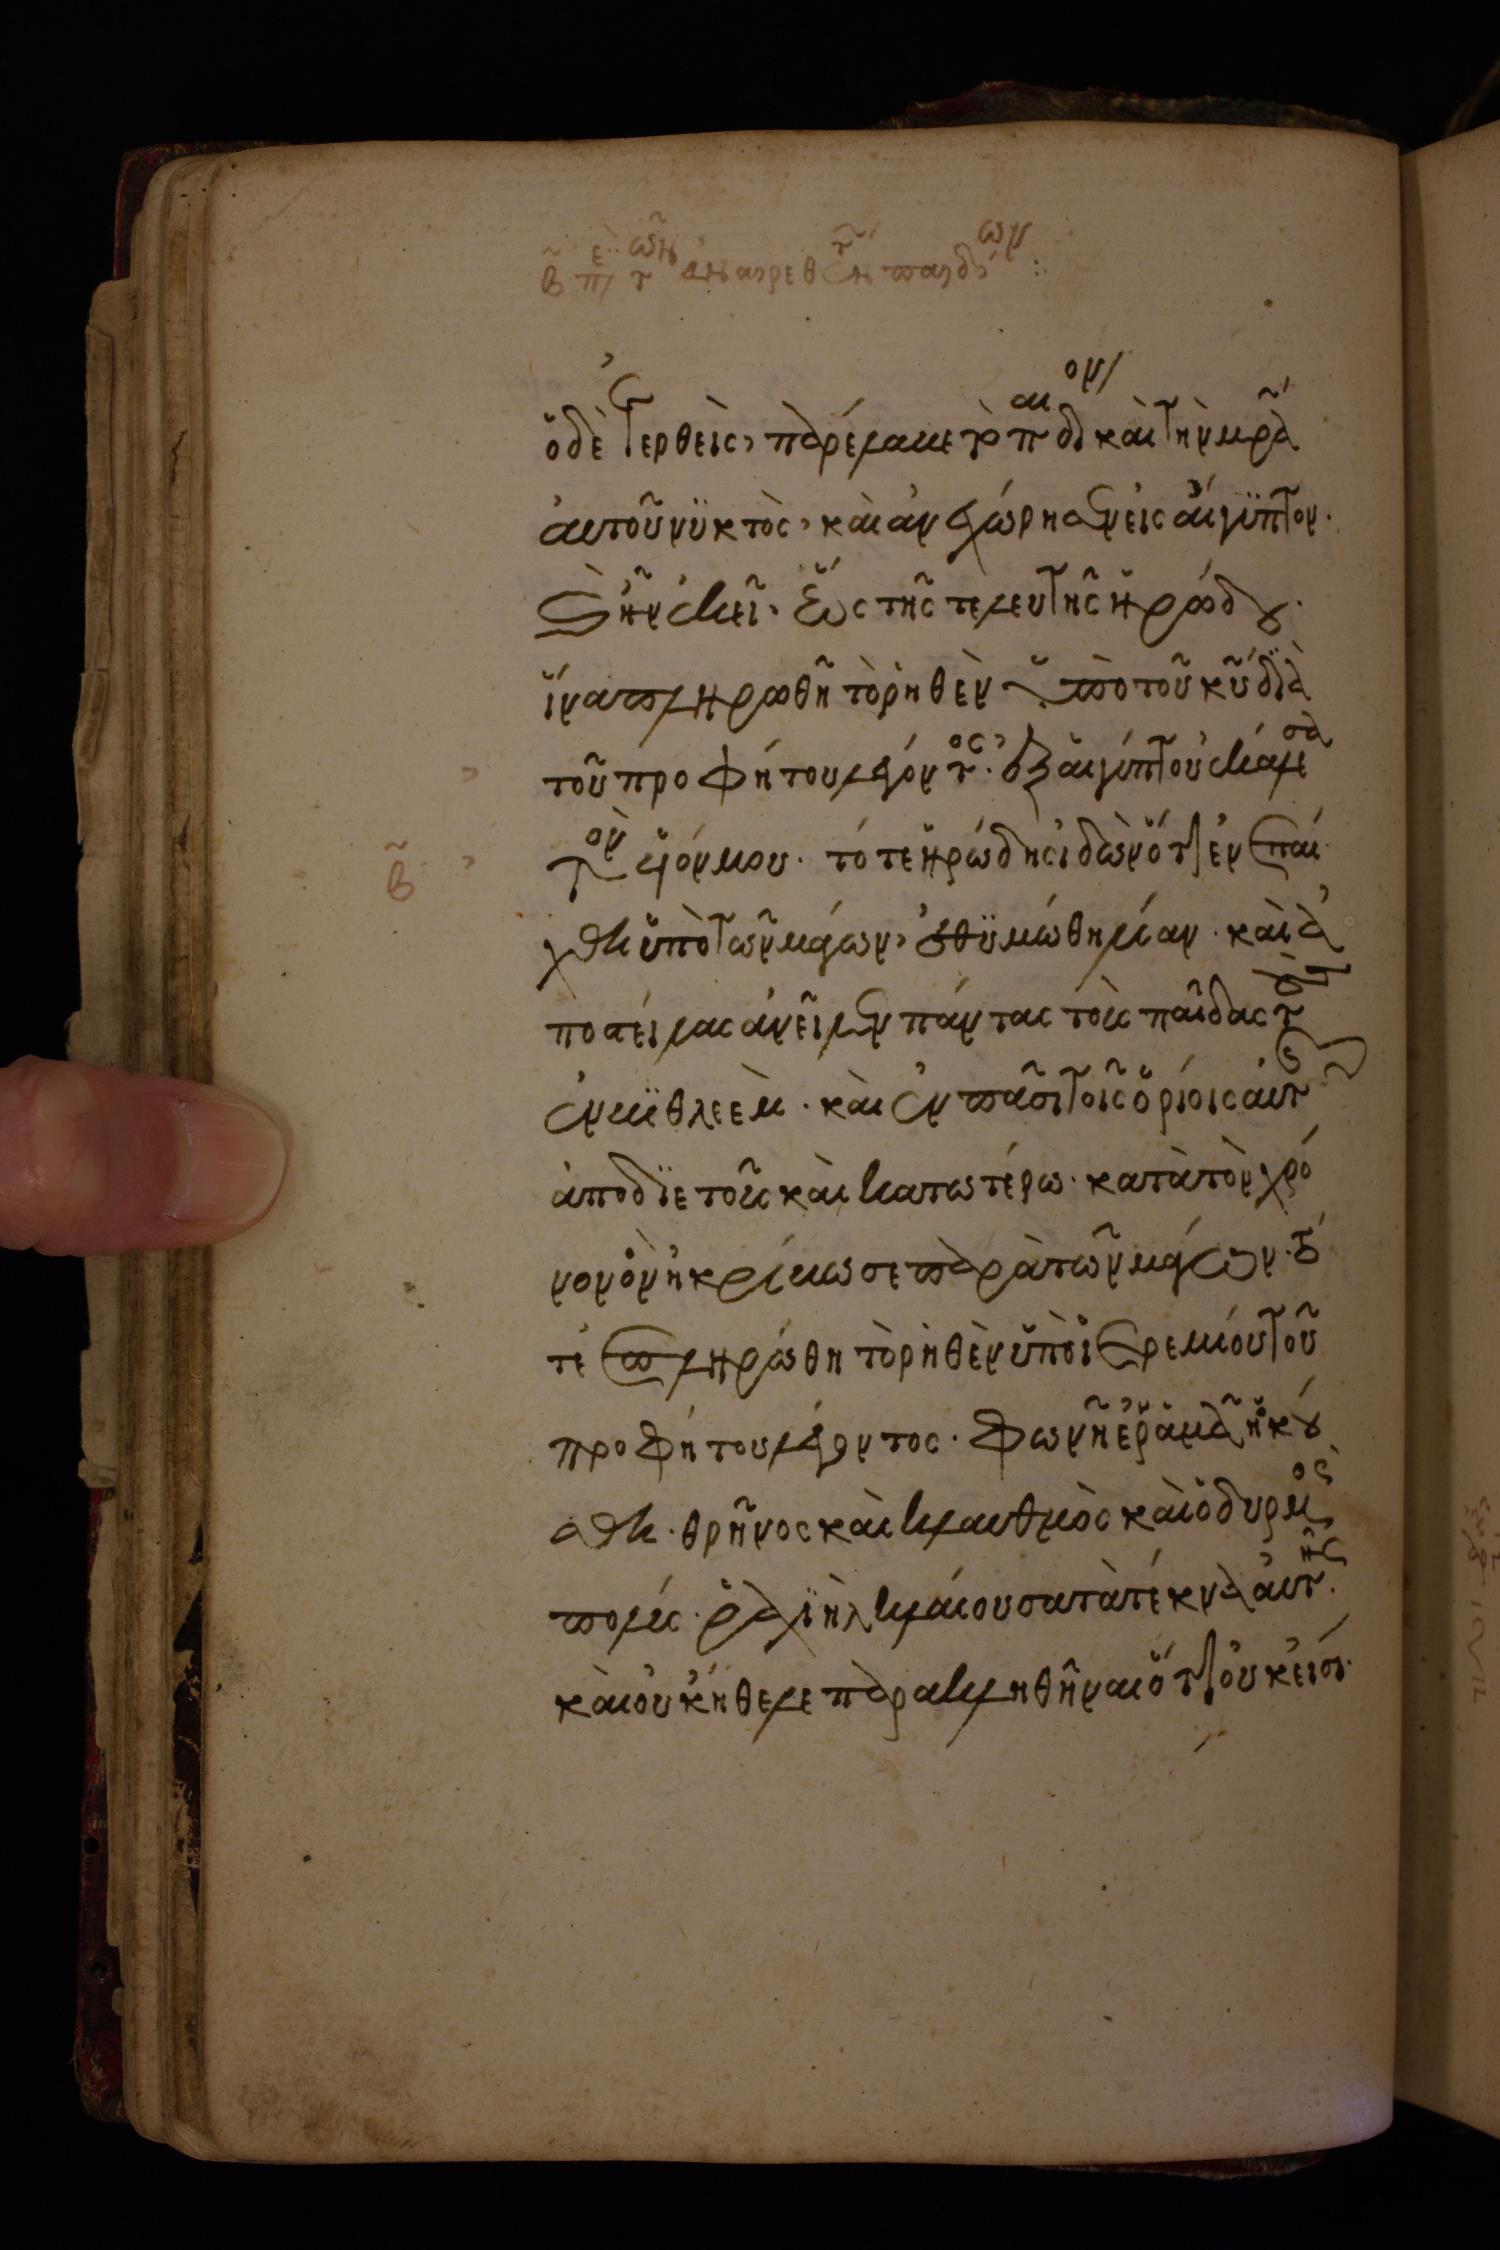 β̃ πε τῶν ἀναιρεθέντων παίδων
ὁ δὲ ἐγερθεὶς, παρέλαβε τὸ παιδίον καὶ τὴν μρ̃α
αὐτοῦ νυκτὸς, καὶ ἀνεχώρησεν εἰς αἴγυπτον.
καὶ ἦν ἐκεῖ, ἕως τῆς τελευτῆς ἡρώδου.
ἵνα πληρωθῆ τὸ ῥηθὲν ὑπὸ τοῦ κῦ διὰ
τοῦ προφήτου λέγοντος. ἐξ αἰγύπτου ἐκάλεσα
τὸν υἱόν μου. τότε ἡρώδης ἰδὼν ὅτι ἐνεπαί
β̃
χθη ὑπὸ τῶν μάγων, ἐθυμώθη λίαν. καὶ ἀ
ποστείλας ἀνεῖλεν πάντας τοὺς παῖδας τοὺς
ἐν βηθλεὲμ. καὶ ἐν πᾶσι τοῖς ὁρίοις αὐτῆς
ἀπὸ διετοῦς καὶ κατωτέρω. κατὰ τὸν χρό
νον ὃν ἠκρίβωσε παρὰ τῶν μάγων. τό
τε ἐπληρώθη τὸ ῥηθὲν ὑπὸ ἱερεμίου τοῦ
προφήτου λέγοντος. φωνὴ ἐν ῥαμᾶ ἠκού
σθη. θρῆνος καὶ κλαυθμὸς καὶ ὀδυρμὸς
πολύς. ῥαχιὴλ κλαίουσα τὰ τέκνα αὐτῆς.
καὶ οὐκ ἤθελε παρακληθῆναι ὅτι οὐκ εἰσί.